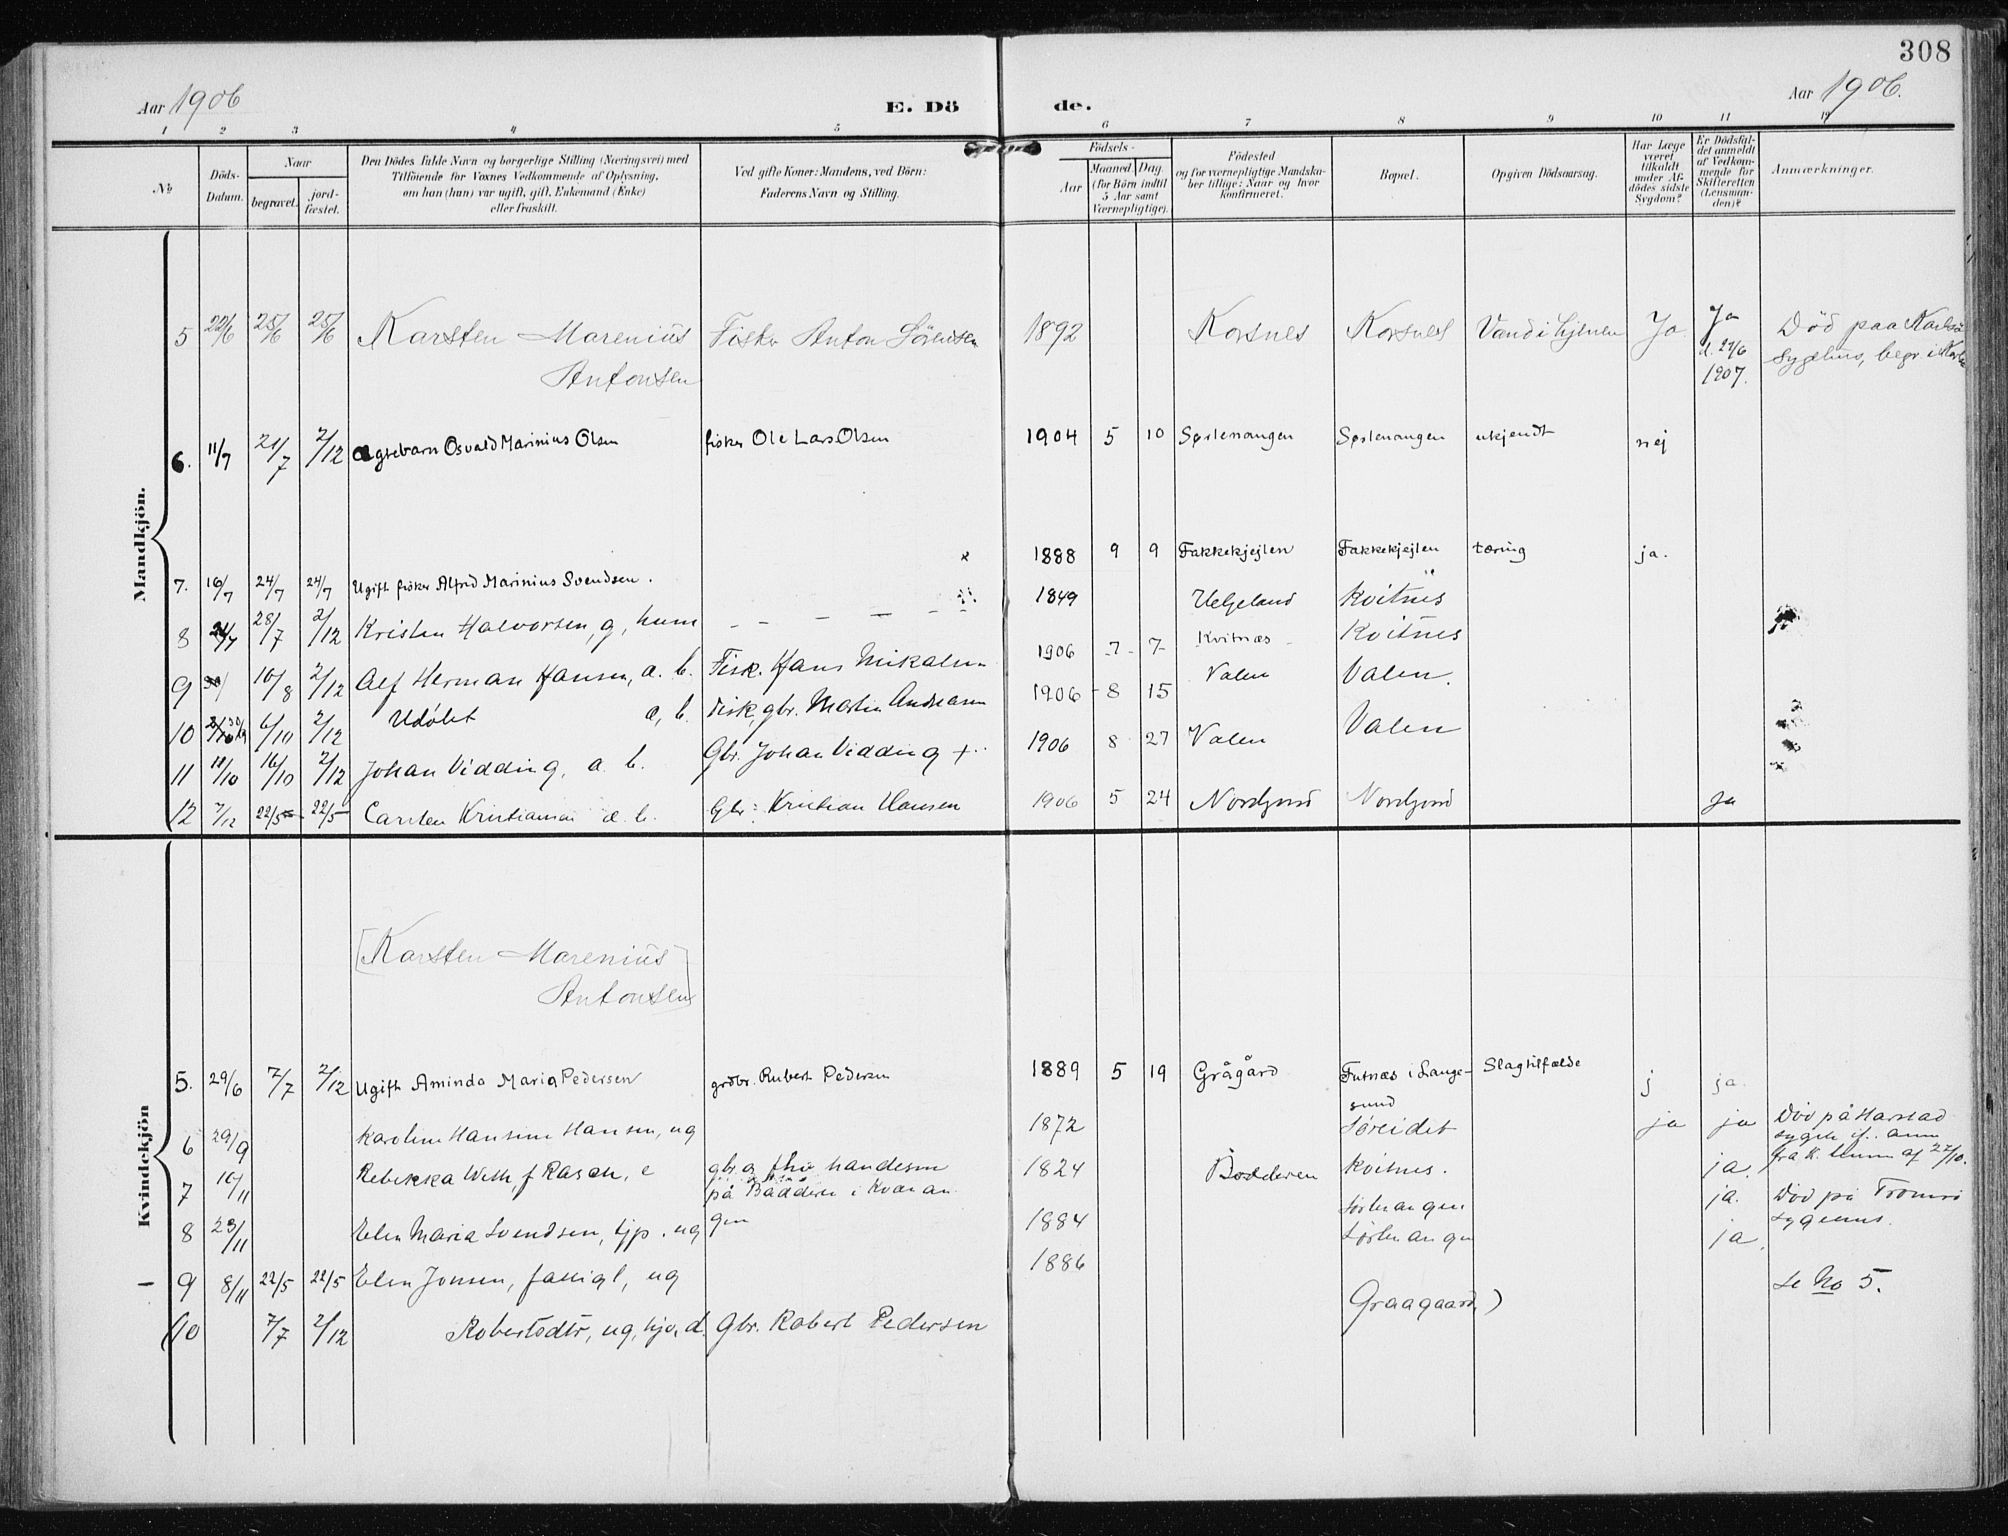 308
Aar 1906
E. Dö
de.
Aar 1906.
1 2 3 4 5 6 7 8 9 10 11 12
No
Döds-
Datum.
Naar
begravet.
jord-
fæstet.
Den Dödes fulde Navn og borgerlige Stilling (Næringsvei) med
Tilföiende for Voxnes Vedkommende af Oplysning,
om han (hun) var ugift, gift, Enkemand (Enke)
eller fraskilt.
Ved gifte Koner: Mandens, ved Börn:
Faderens Navn og Stilling.
Födsels-
Aar
Maaned. Dag.
(for Börn indtil
5 Aar samt
Værnepligtige).
Födested
og for værnepligtige Mandska-
ber tillige: Naar og hvor
konfirmeret.
Bopæl.
Opgiven Dödsaarsag.
Har Læge
været
tilkaldt
under Af-
dödes sidste
Sygdom?
Er Dödsfal-
det anmeldt
af Vedkom-
mende for
Skifteretten
(Lensman-
den)?
Anmærkninger.
Mandkjön.
5 22/6 25/6 25/6 Karsten Marenius Fisker Anton Sörensen 1892 Korsnes Korsnes Vand i Hjernen Ja Ja Död paa Karlsö
Antonsen d. 27/6 Sygehus, begr. i
1907.
6. 11/7 21/7 2/12 ægtebarn Osvald Marinius Olsen fisker Ole Lars Olsen 1904 5 10 Sørlenangen Sørlenangen ukjendt nej
7. 16/7 24/7 24/7 Ugift fisker Alfred Marinius Svendsen. 1888 9 9 Fakkekjejlen Fakkekjejlen tæring ja.
8 28/7 2/12 Kristen Halvorsen, g, husm – – – – 1849 Helgeland Kvitnes
9 10/8 2/12 Alf Herman Hansen, a. b. Fisk. Hans Mikalsen 1906 7 7 Kvitnæs Kvitnes
10 6/10 2/12 Udøbt a, b. Fisk, gbr. Martin Andreasen 1906 8 15 Valen Valen.
11 10/10 16/10 2/12 Johan Vidding, a. b. Gbr. Johan Vidding + 1906 8 27 Valen Valen
12 7/12 22/5 22/5 Carsten Kristiansen æ. b. Gbr: Kristian Hansen 1906 5 24 Nordfjord Nordfjord ja
Kvindekjön
[Karsten Marenius
Antonsen]
5. 29/6 7/7 2/12 Ugift Aminda Maria Pedersen grdbr. Robert Pedersen 1889 5 19 Grågård Futnæs i Lange- Slagtilfælde j ja.
sund
6 29/9 Karoline Hansine Hansen, ug 1872 Søreidet ja ja Død på Harstad
sygeh if. anm
fra k. lensm af 27/10.
7 10/11 Rebekka Weth, f Rasch, e gbr. og handelsm 1824 Badderen Kvitnes. ja.
på Badderen i Kvænan
gen
8 23/11 Elen Maria Svendsen, tjp. ug 1884 Sørlenangen ja. Død på Tromsø
sygehus.
9 8/11 22/5 22/5 Elen Jonsen, fattigl, ug 1886 Sørlenangen ja.
10 7/7 2/12 Robertsdtr, ug, hjv. d. Gbr. Robert Pedersen Graagaard) Se No 5.